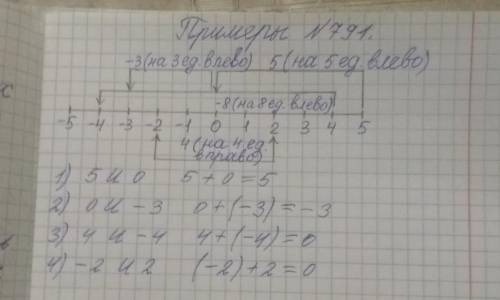 Примеры №791.
-3(на 3 ед. влево) 5(на 5 ед. влево)
-8(на 8 ед. влево)
-5 -4 -3 -2 -1 0 1 2 3 4 5
4(на 4 ед.
вправо)
1) 5 и 0 5+0=5
2) 0 и -3 0+(-3)=-3
3) 4 и -4 4+(-4)=0
4) -2 и 2 (-2)+2=0